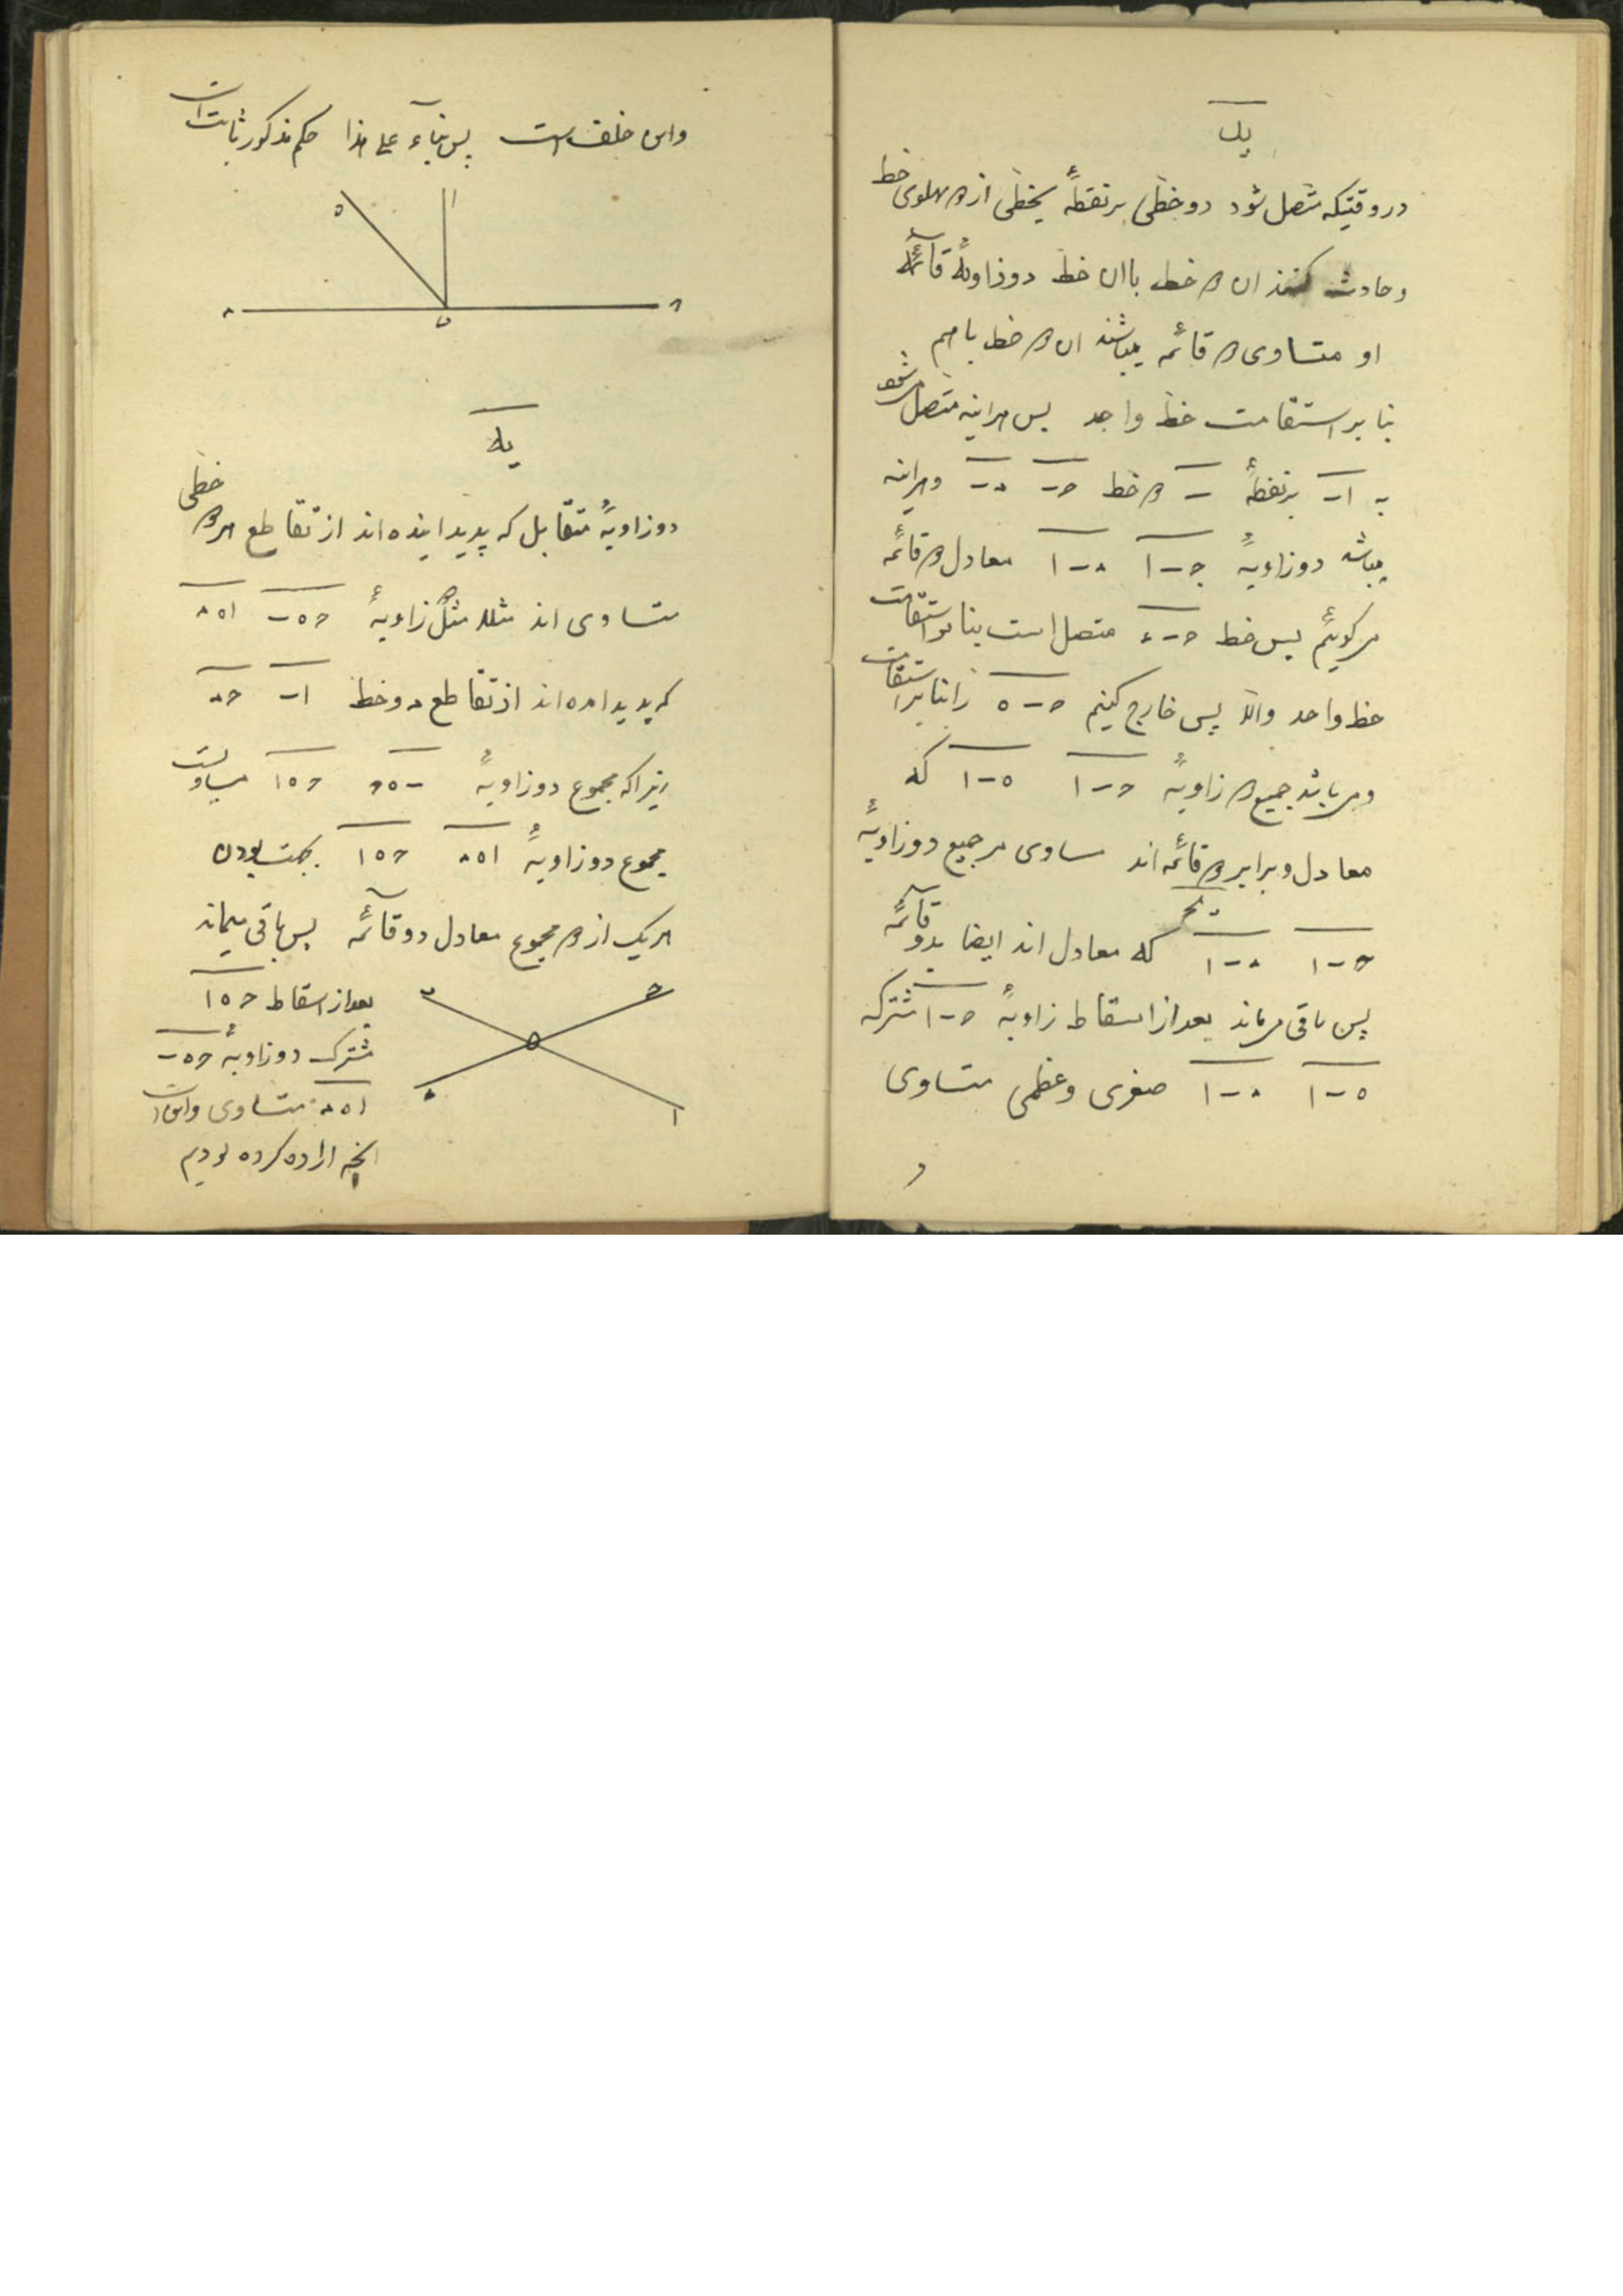 ید
در وقتیکه متصل شود دو خطی بر نقطهٔ بخطی از دو پهلوی خط
و حادث کنند ان دو خط با ان خط دو زاویهٔ قائمه
او متساوی دو قائمه میباشند ان دو خط با هم
بنا بر استقامت خط واحد پس هراینه متصل میشود
به اب بر نقطهٔ ب دو خط حب ءب و هراینه
میباشد دو زاویهٔ حبا ءبا معادل دو قائمه
میگوئیم پس خط حبء متصل است بنا بر استقامت
خط واحد والا پس خارج کنیم حبه را بنا بر استقامت
و میباشد جمیع دو زاویهٔ حبا هبا که
معادل و برابر دو قائمه اند مساوی مر جمیع دو زاویهٔ
یح
حبا ءبا که معادل اند ایضا بدو قائمه
پس باقی میماند بعد از اسقاط زاویهٔ حبا مشترکه
هبا ءبا صغری و عظمی متساوی
و
و این خلف است پس بناء علی هذا حکم مذکور ثابت است
ه ا
ء ب ح
یه
دو زاویهٔ متقابل که پدید اینده اند از تقاطع هر دو خطی
متساوی اند مثلا مثل زاویهٔ حهب اهء
که پدید امده اند از تقاطع دو خط اب حء
زیرا که مجموع دو زاویهٔ بهح حها مساویست
مجموع دو زاویهٔ اهء حها بجهت بودن
هریک از دو مجموع معادل دو قائمه پس باقی میماند
بعد از اسقاط حها
مشترک دو زاویهٔ حهب
اهء متساوی و این است
انچه اراده کرده بودیم
ب ح
ه
ء ا